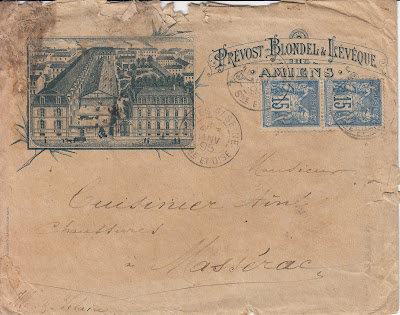 PRÉVOST-BLONDEL & LÉVÊQUE
AMIENS
15 15
JANV
95
Monsieur
Cuisinier Aîné
Chaussures
à Massérac